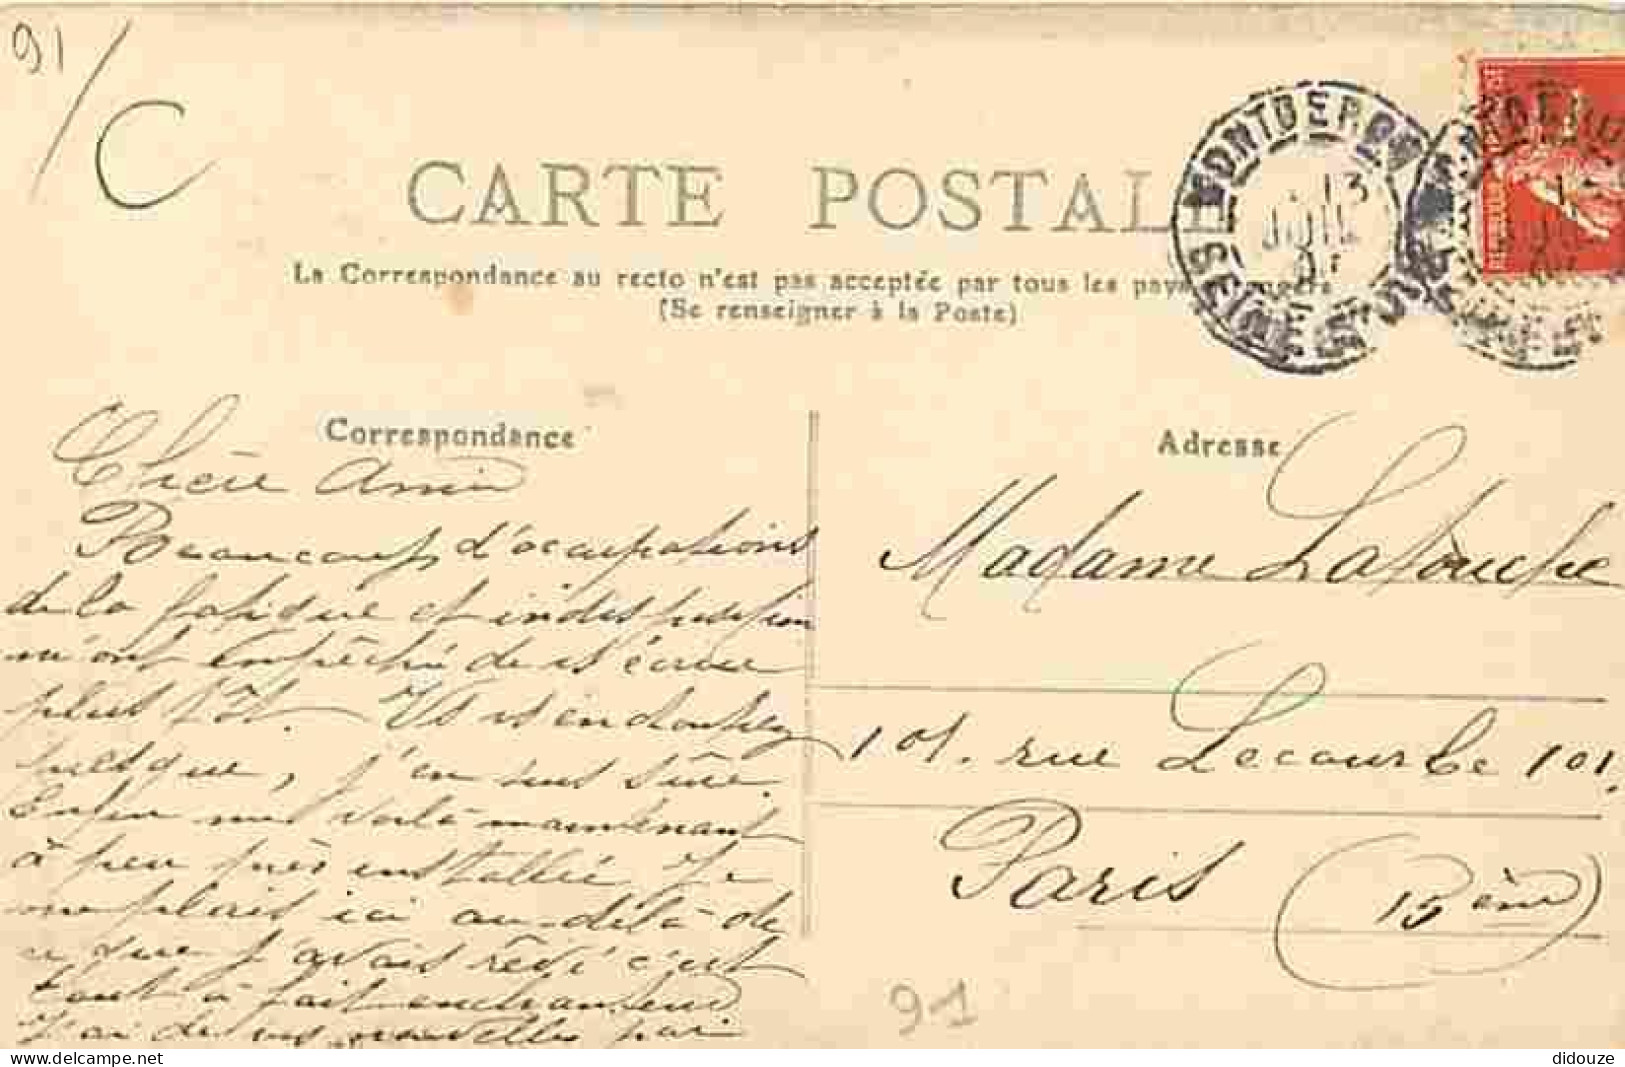 91
C
CARTE POSTALE
MONTGERON
13
JUIL
SEINE
La Correspondance au recto n'est pas acceptée par tous les pays étrangers
(Se renseigner à la Poste)
Correspondance
Adresse
Chère Amie
Beaucoup d'occupations
de la fatigue et indisposition
m'ont empêché de vs écrire
plus tôt. Vs vs en doutiez
presque, j'en suis sûre.
Enfin me voilà maintenant
à peu près installée je
me plais ici au-delà de
ce que j'avais rêvé c'est
tout à fait enchanteur
J'ai de vos nouvelles par
Madame Latouche
101. rue Lecourbe 101.
Paris (15ème)
91
didouze
delcampe.net